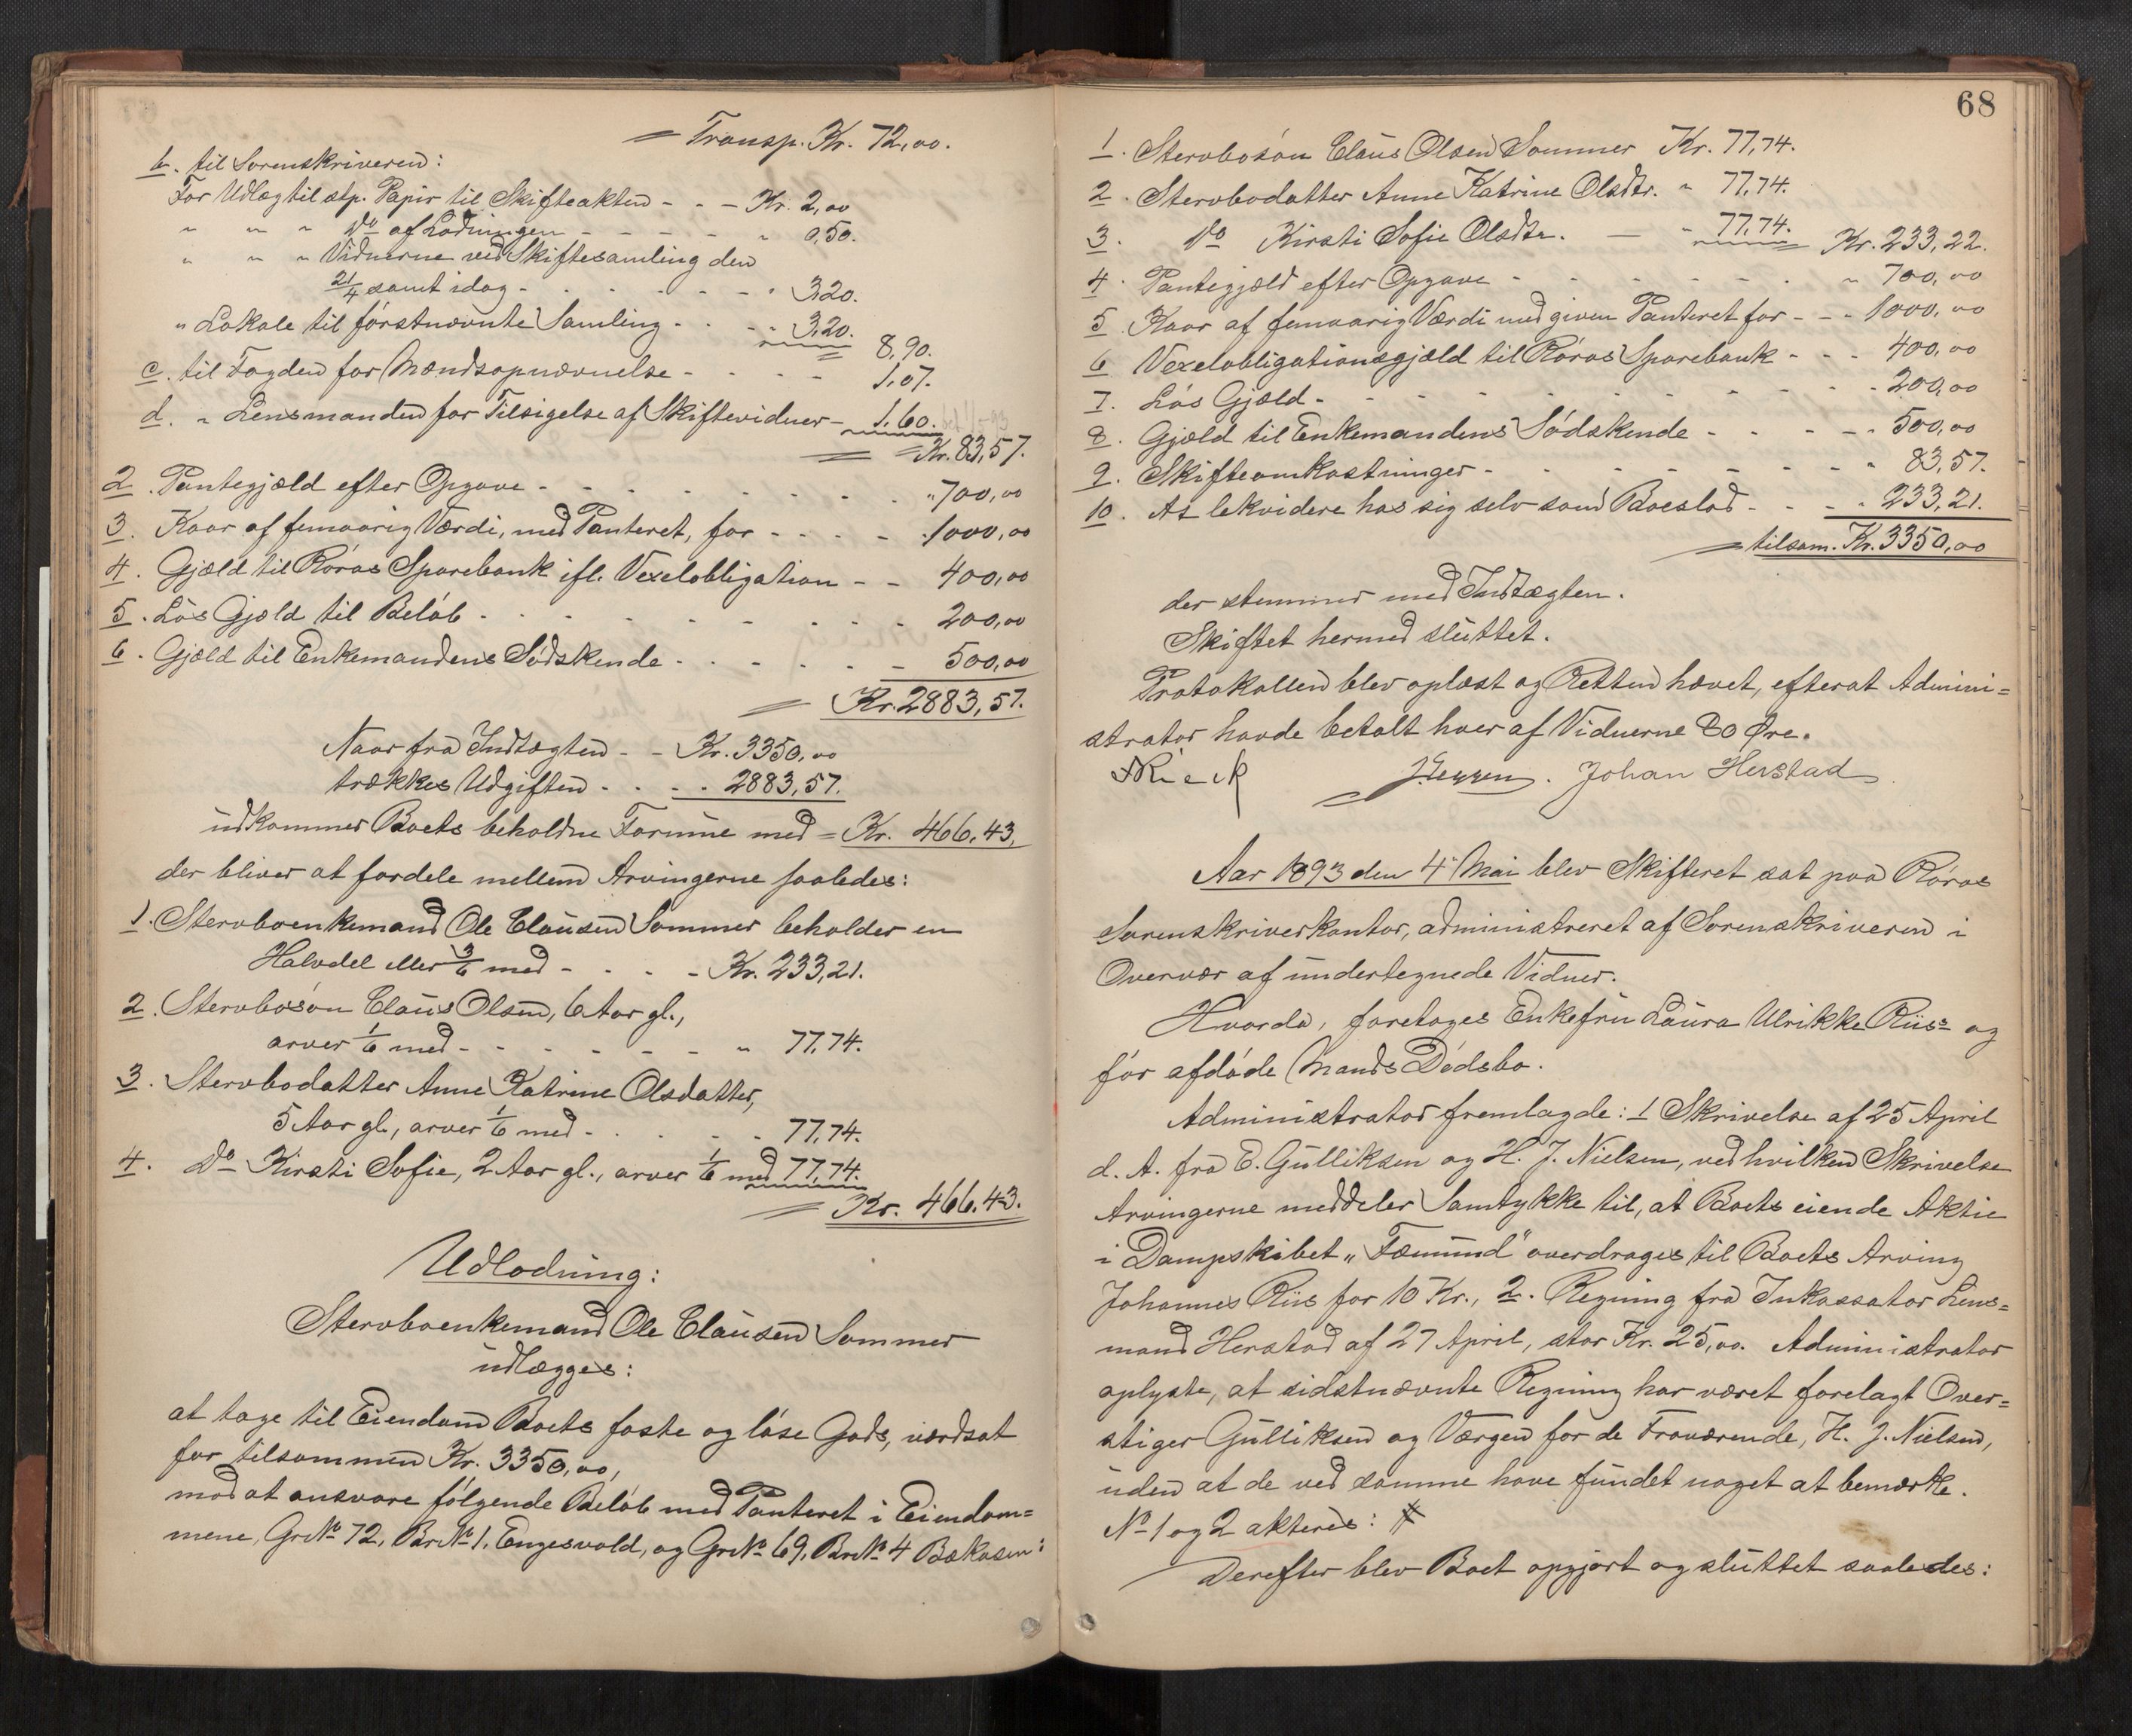 Transp. Kr. 72,00.
b. til Sorenskriveren:
For Udlæg til stp. Papir til Skifteakten - - - Kr. 2,00
" " " Do af Lodningen - - - - - " 0,50.
" " " Vidnerne ved Skiftesamling den
21/4 samt idag - - - - - - " 3,20.
" Lokale til førstnævnte Samling - - - " 3,20.
8,90.
c. til Fogden for Mændsopnævnelse - - - - 1,07.
d. " Lensmanden for Tilsigelse af Skiftevidner - 1,60.
= Kr. 83,57.
2. Pantegjæld efter Opgave - - - - - - - - " 700,00
3. Kaar af femaarig Værdi, med Panteret, for - - - - 1000,00
4. Gjæld til Røros Sparebank ifl. Vexelobligation - - 400,00
5. Løs Gjæld til Beløb - - - - - - - - 200,00
6. Gjæld til Enkemandens Sødskende - - - - - - 500,00
= Kr. 2883,57.
Naar fra Indtægten - - Kr. 3350,00
trækkes Udgiften - - - - 2883,57.
udkommer Boets beholdne Formue med = Kr. 466,43.
der bliver at fordele mellem Arvingerne saaledes:
1. Stervboenkemand Ole Clausen Sommer beholder en
Halvdel eller 3/6 med - - - - Kr. 233,21.
2. Stervbosøn Claus Olsen, 6 Aar gl.,
arver 1/6 med - - - - - - - " 77,74.
3. Stervbodatter Anne Katrine Olsdatter,
5 Aar gl., arver 1/6 med - - - - - 77,74.
4. Do Kirsti Sofie, 2 Aar gl., arver 1/6 med 77,74.
= Kr. 466,43.
Udlodning:
Stervboenkemand Ole Clausen Sommer
udlægges:
at tage til Eiendom Boets faste og løse Gods, værdsat
for tilsammen Kr. 3350,00,
mod at ansvare følgende Beløb med Panteret i Eiendom=
mene, Gr No 72, Br No 1, Engesvold, og Gr No 69, Br No 4 Bækosen:
68
1. Stervbosøn Claus Olsen Sommer Kr. 77,74.
2. Stervbodatter Anne Katrine Olsdtr. " 77,74.
3. Do Kirsti Sofie Olsdtr. — " 77,74. Kr. 233,22.
4. Pantegjæld efter Opgave - - - - - - - " 700,00
5. Kaar af femaarig Værdi med given Panteret for - - - 1000,00
6. Vexelobligationsgjæld til Røros Sparebank - - - 400,00
7. Løs Gjæld - - - - - - - - - - 200,00
8. Gjæld til Enkemandens Sødskende - - - - - 500,00
9. Skifteomkostninger - - - - - - - - " 83,57.
10. At lekvidere hos sig selv som Boeslod - - - - 233,21.
= tilsam. Kr. 3350,00
der stemmer med Indtægten.
Skiftet hermed sluttet.
Protokollen blev oplæst og Retten hævet, efterat Admini=
strator havde betalt hver af Vidnerne 80 Øre.
Johan Herstad
Aar 1893 den 4 Mai blev Skifteret sat paa Røros
Sorenskriverkontor, administreret af Sorenskriveren i
Overvær af undertegnede Vidner.
Hvorda, foretoges Enkefru Laura Ulrikke Riis= og
før afdøde Mands Dødsbo.
Administrator fremlagde: 1 Skrivelse af 25 April
d. A. fra E. Gulliksen og H. J. Nielsen, ved hvilken Skrivelse
Arvingerne meddeler Samtykke til, at Boets eiende Aktie
i Dampskibet „Fæmund" overdrages til Boets Arving
Johannes Riis for 10 Kr., 2. Regning fra Inkassator Lens=
mand Herstad af 27 April, stor Kr. 25,00. Administrator
oplyste, at sidstnævnte Regning har været forelagt Over=
stiger Gulliksen og Værgen for de Fraværende, H. J. Nielsen,
uden at de ved samme have fundet noget at bemærke.
No 1 og 2 akteres: #
Derefter blev Boet opgjort og sluttet saaledes: